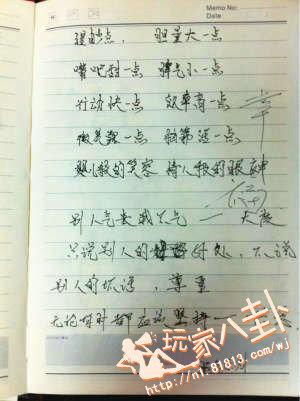 Memo No:
Date
理由少点, 胆量大一点
嘴吧甜一点 脾气小一点
行动快一点 效率高一点
微笑露一点 脑筋活一点
婴儿般的笑容 待人般的眼神
别人气我我不气 — 大度
只说别人的好处, 不说
别人的坏话, 尊重
无论何时都应该坚持一
玩家八卦
http://n1.81813.com/wj